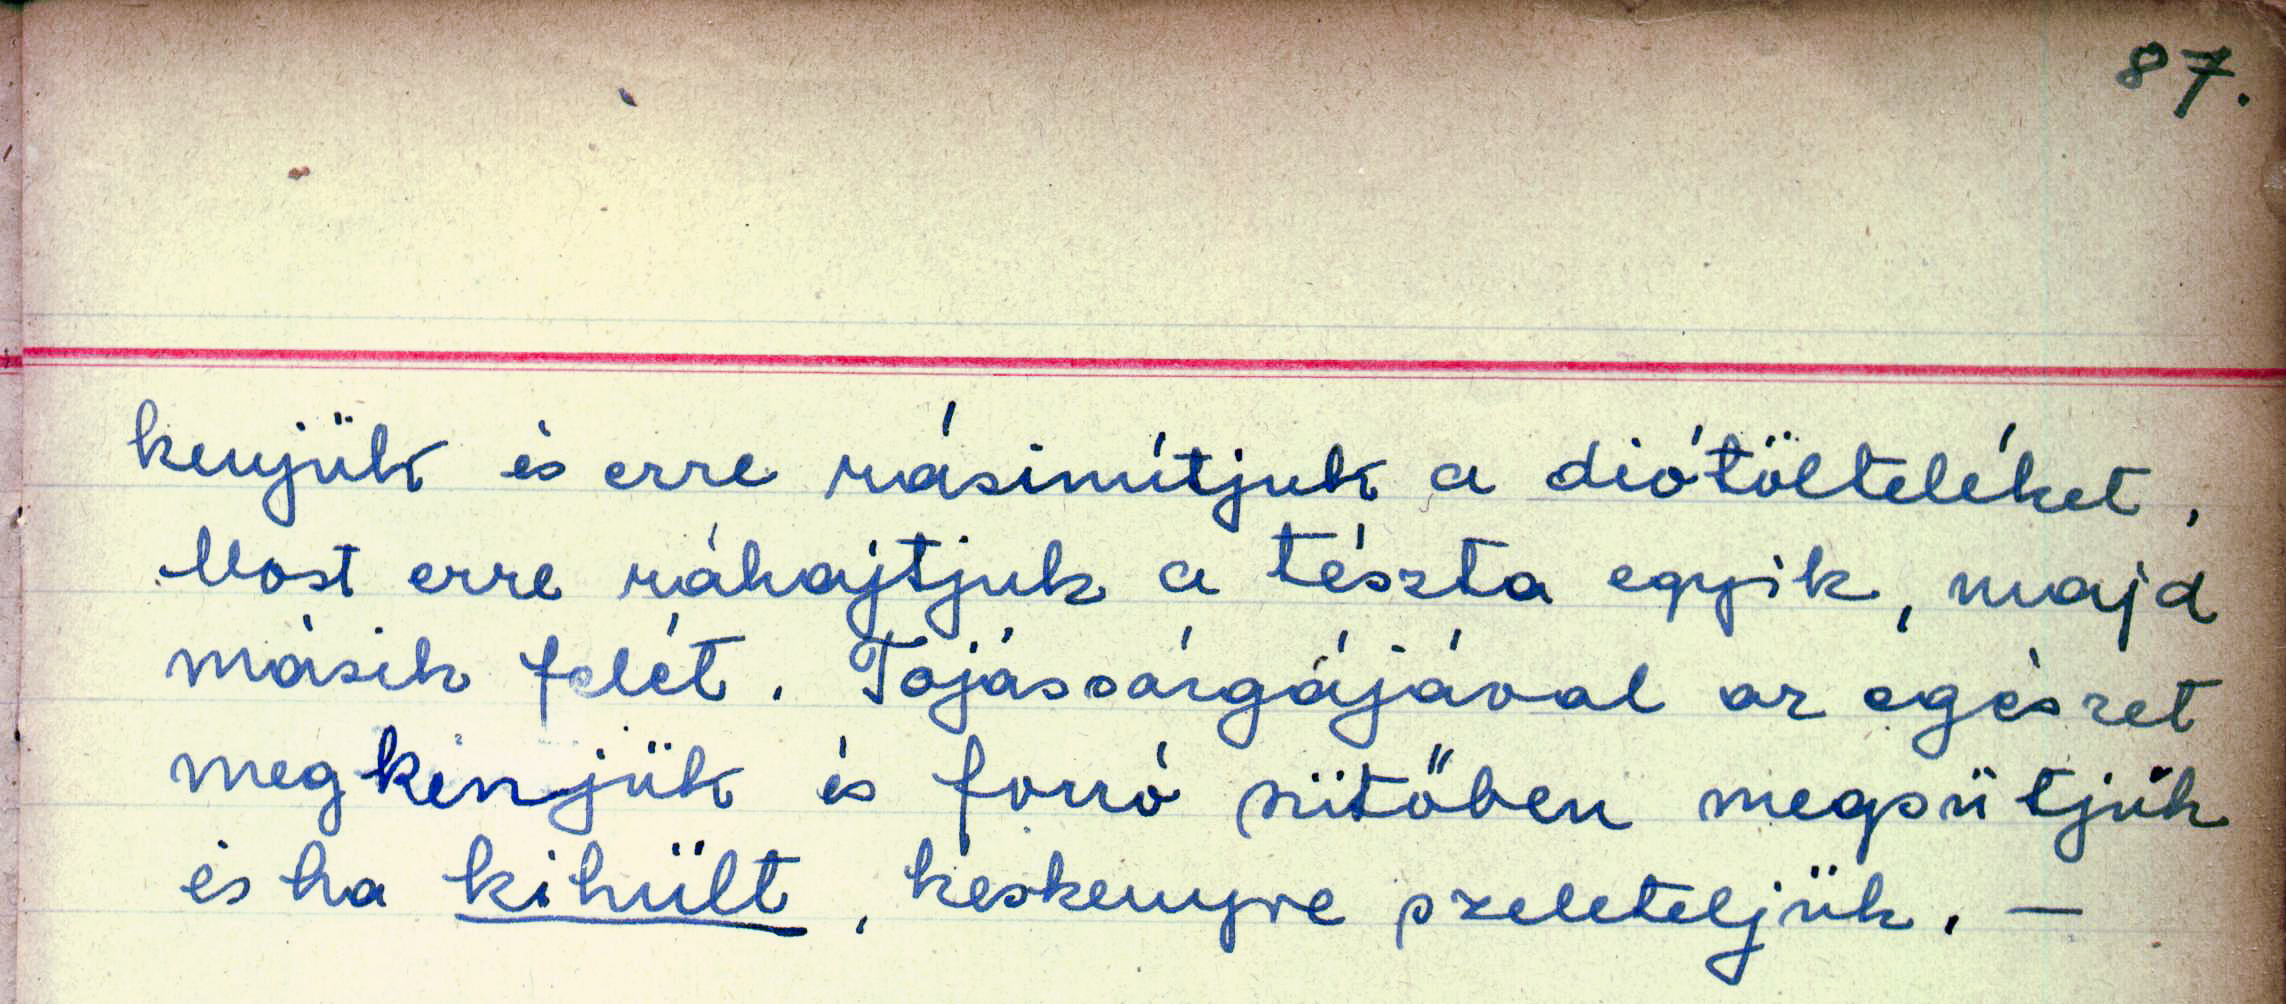 87.
kenjük és erre rásimítjuk a diótölteléket,
Most erre ráhajtjuk a tészta egyik, majd
másik felét. Tojássárgájával az egészet
megkenjük és forró sütőben megsütjük
és ha kihült, keskenyre szeleteljük. —